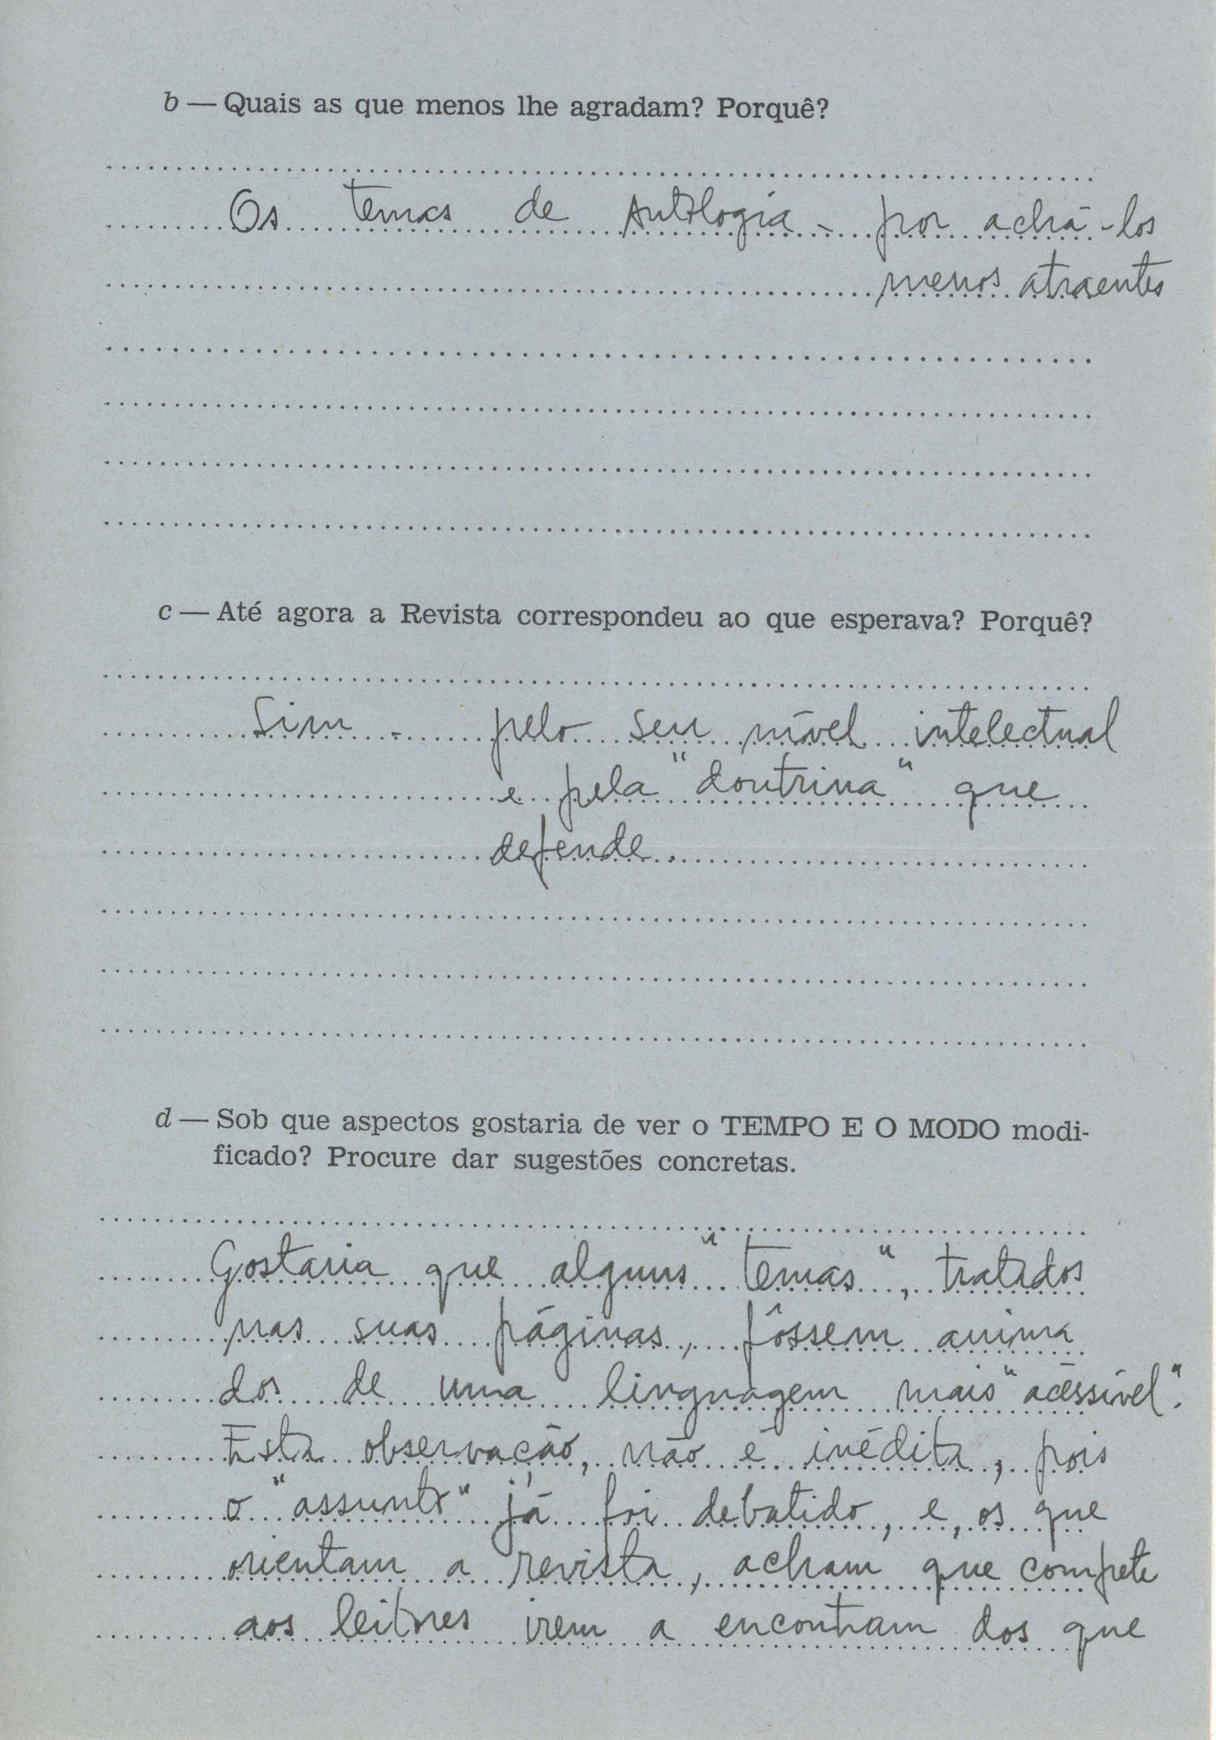 b — Quais as que menos lhe agradam? Porquê?
Os temas de Antologia - por achá-los
menos atraentes
c — Até agora a Revista correspondeu ao que esperava? Porquê?
Sim - pelo seu nível intelectual
e pela "doutrina" que
defende.
d — Sob que aspectos gostaria de ver o TEMPO E O MODO modi-
ficado? Procure dar sugestões concretas.
Gostaria que alguns "temas", tratados
nas suas páginas, fôssem anima
dos de uma linguagem mais "acéssível".
Esta observação, não é inédita, pois
o "assunto" já foi debatido, e, os que
orientam a revista, acham que compete
aos leitores irem a encontram dos que